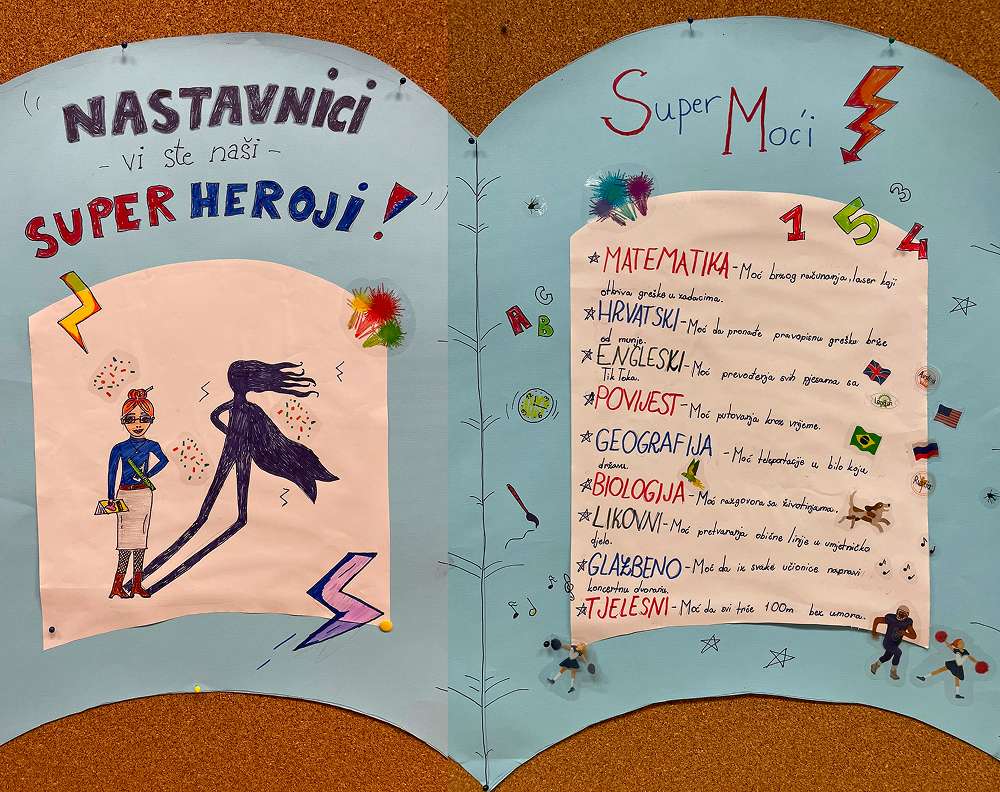 NASTAVNICI
- vi ste naši -
SUPER HEROJI!
Super Moći
1 5 3 4
MATEMATIKA - Moć brzog računanja, laser koji
otkriva greške u zadacima.
HRVATSKI - Moć da pronađe pravopisnu grešku brže
od munje.
ENGLESKI - Moć prevođenja svih pjesama sa
Tik Toka.
POVIJEST - Moć putovanja kroz vrijeme.
GEOGRAFIJA - Moć teleportacije u bilo koju
državu.
BIOLOGIJA - Moć razgovora sa životinjama.
LIKOVNI - Moć pretvaranja obične linije u umjetničko
djelo.
GLAZBENO - Moć da iz svake učionice napravi
koncertnu dvoranu.
TJELESNI - Moć da svi trče 100m bez umora.
A B C